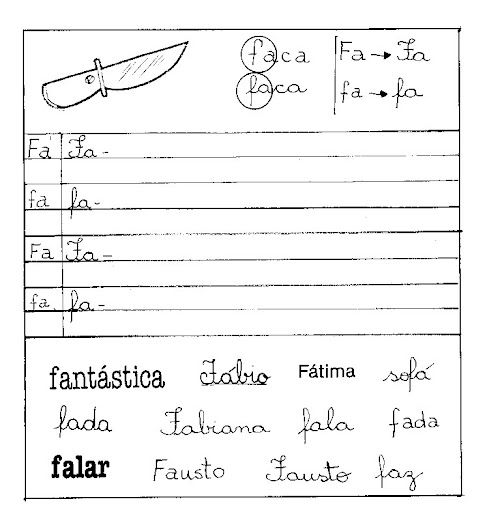 faca Fa → Fa
faca fa → fa
Fa Fa -
fa fa -
Fa Fa -
fa fa -
fantástica Fábio Fátima sofá
fada Fabiana fala fada
falar Fausto Fausto faz